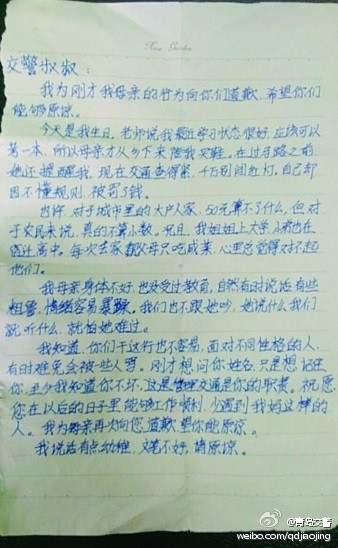 交警叔叔：
我为刚才我母亲的行为向你们道歉，希望你们
能够原谅。
今天是我生日，老师说我最近学习状态很好，应该可以
第一本，所以母亲才从乡下来陪我买鞋。在过马路之前
她还提醒我，现在交通查得紧，千万别闯红灯，自己却
因不懂规则，被罚了钱。
也许，对于城市里的大户人家，50元算不了什么，但对
于农民来说，真的不算小数。况且，我姐姐上大学，小弟也在
读高中。每次去家教父母只吃咸菜，心里总觉得对不起
他们。
我母亲身体不好，也没受过教育，自然有时说话有些
粗鲁，情绪容易暴躁。我们也不跟她吵，她说什么我们
就听什么，就怕她难过。
我知道，你们干这行也不容易，面对不同性格的人，
有时难免会被一些人骂。刚才想问你姓名，只是想记住
你，至少我知道你不坏，这是管理交通是你的职责。祝愿
您在以后的日子里能够工作顺利，少遇到我妈这样的
人。我为母亲再次向您道歉，望你能原谅。
我说话有点幼稚，文笔不好，请原谅。
@青岛交警
weibo.com/qdjiaojing